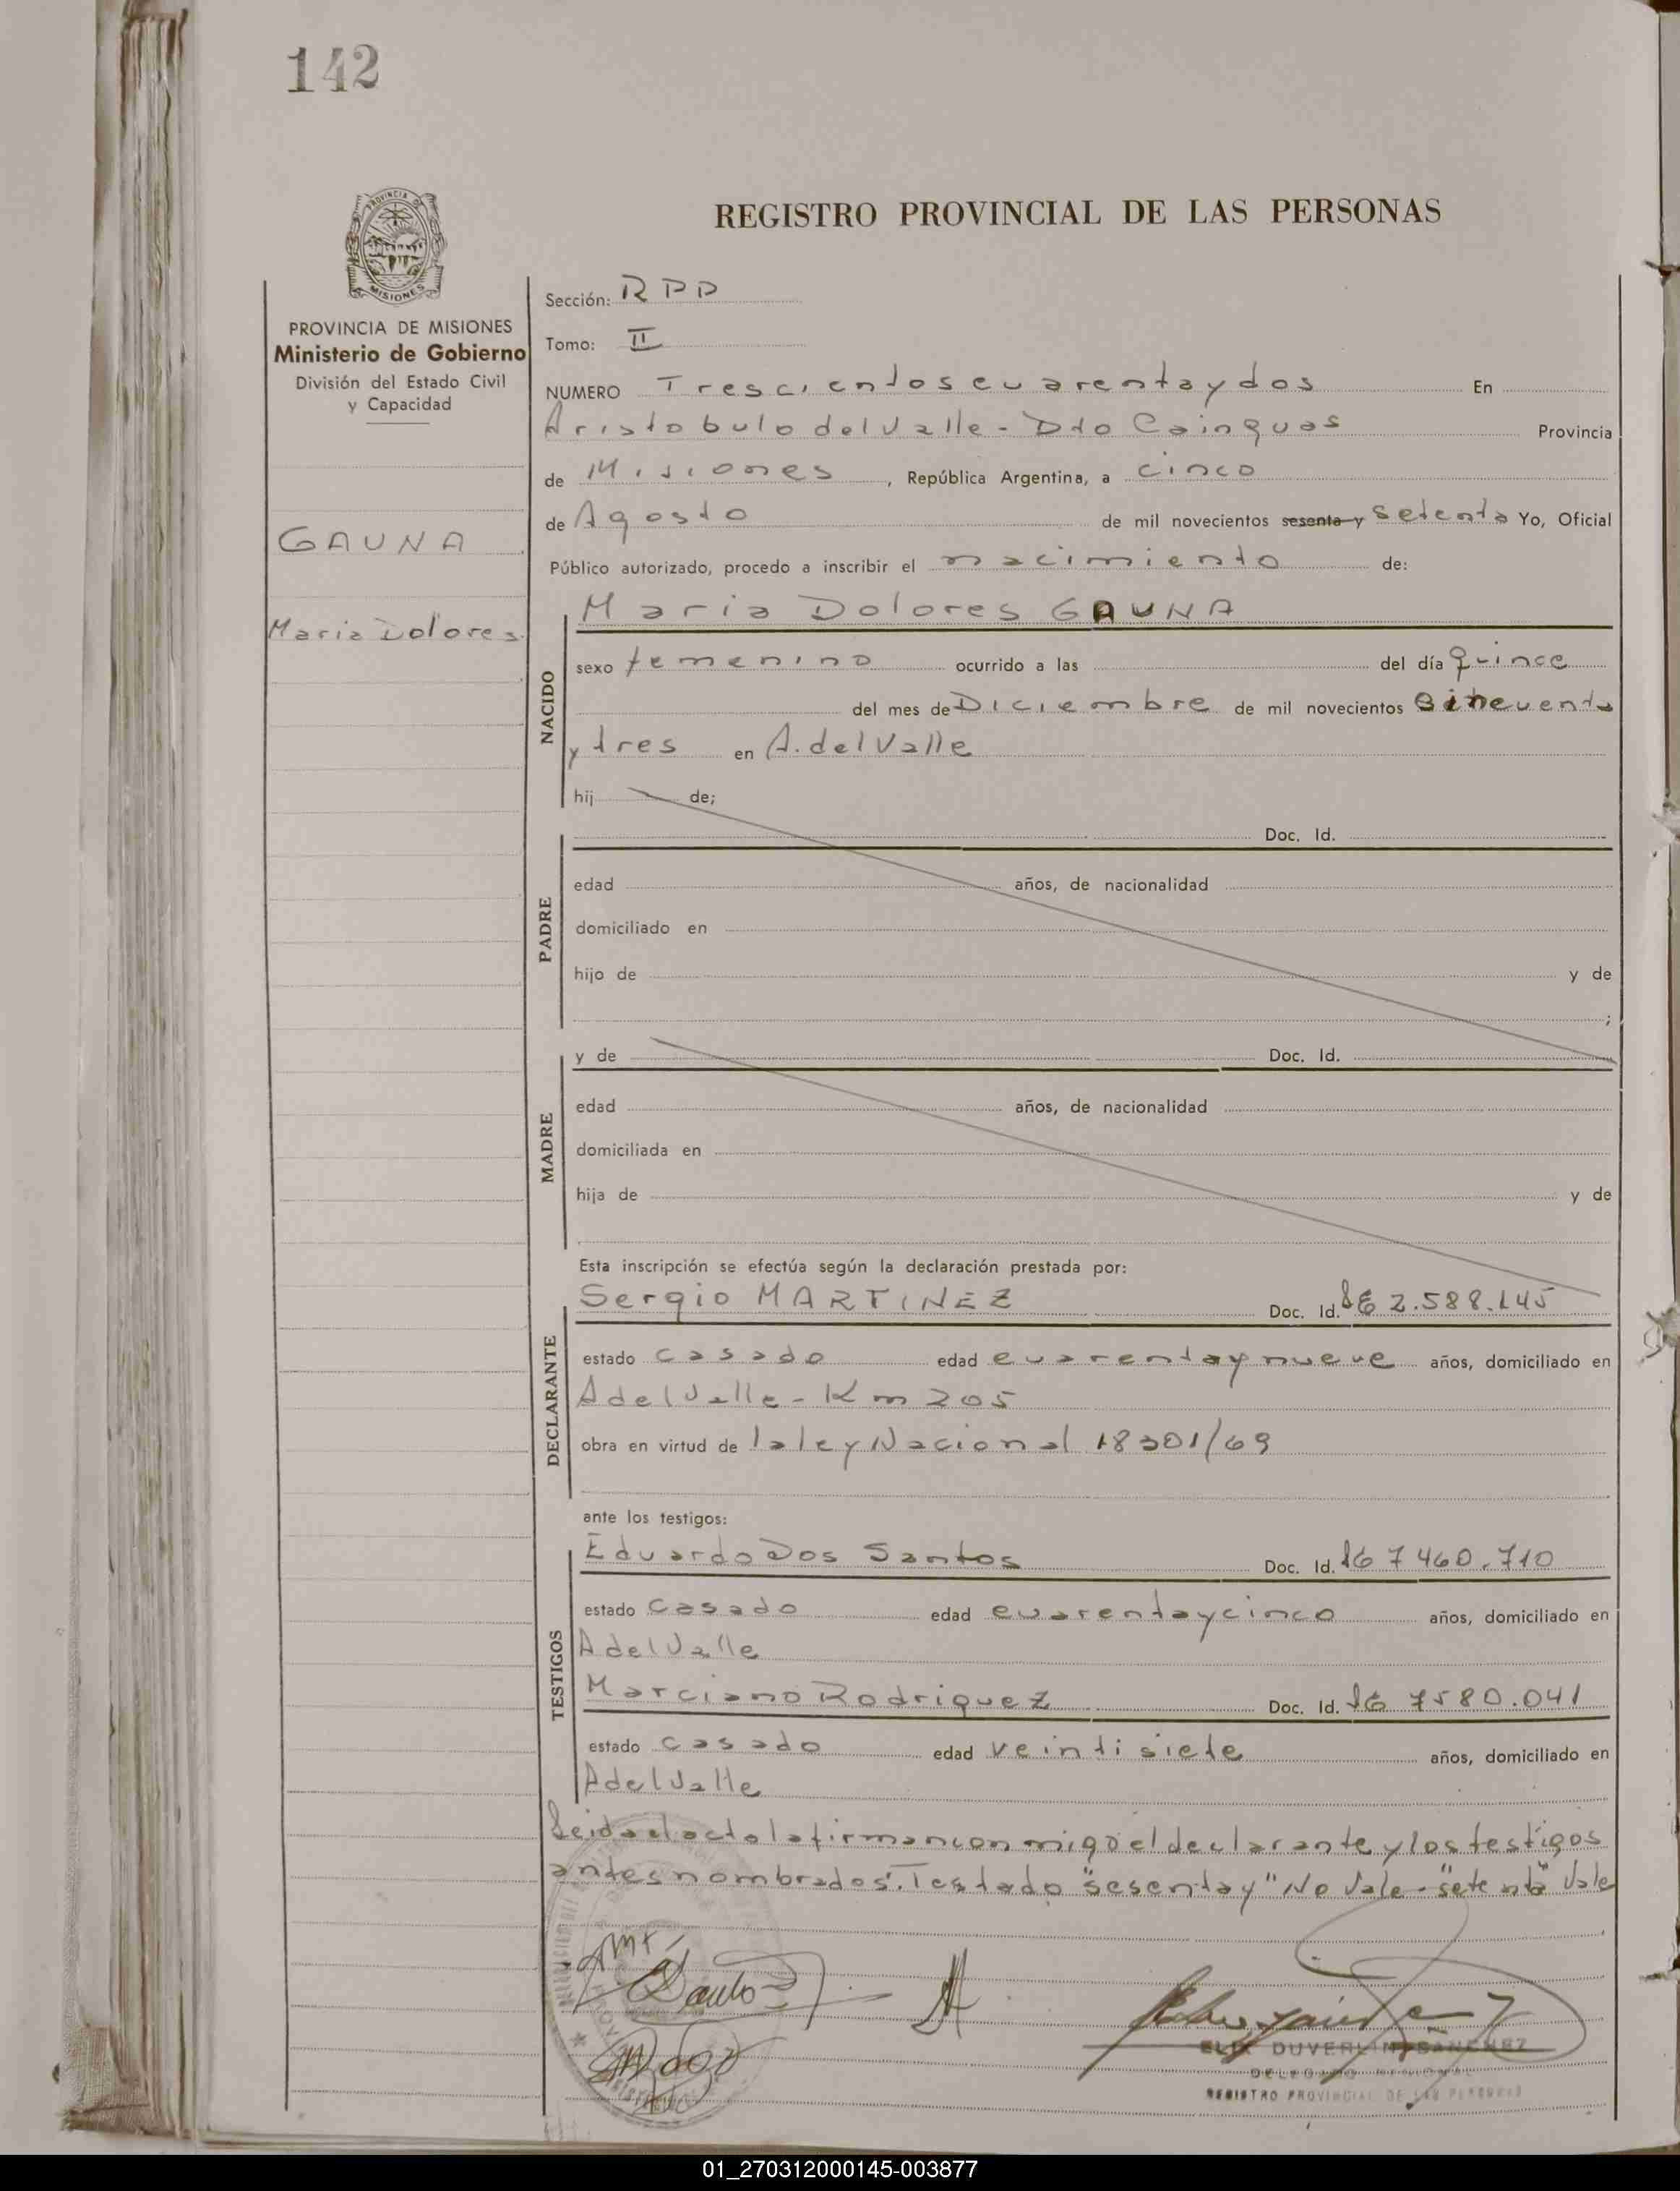 142
PROVINCIA DE
MISIONES
REGISTRO PROVINCIAL DE LAS PERSONAS
PROVINCIA DE MISIONES
Ministerio de Gobierno
División del Estado Civil
y Capacidad
GAUNA
Maria Dolores
Sección: RPP
Tomo: II
NUMERO Trescientos cuarenta y dos En
Aristobulo del Valle - Dto Cainguas Provincia
de Misiones, República Argentina, a cinco
de Agosto de mil novecientos sesenta y setenta Yo, Oficial
Público autorizado, procedo a inscribir el nacimiento de:
Maria Dolores GAUNA
NACIDO
sexo femenino ocurrido a las del día quince
del mes de Diciembre de mil novecientos cincuenta
y tres en A. del Valle
hij de;
PADRE
Doc. Id.
edad años, de nacionalidad
domiciliado en
hijo de y de
;
MADRE
y de Doc. Id.
edad años, de nacionalidad
domiciliada en
hija de y de
Esta inscripción se efectúa según la declaración prestada por:
DECLARANTE
Sergio MARTINEZ Doc. Id. 2.588.145
estado casado edad cuarenta y nueve años, domiciliado en
A del Valle - Km 205
obra en virtud de la ley Nacional 18301/69
ante los testigos:
TESTIGOS
Eduardo Dos Santos Doc. Id. 7460.710
estado casado edad cuarenta y cinco años, domiciliado en
A del Valle
Marciano Rodriguez Doc. Id. 7580.041
estado casado edad veintisiete años, domiciliado en
A del Valle
Leida el acta la firman conmigo el declarante y los testigos
antes nombrados. Testado "sesenta y" No Vale - "setenta" Vale
DELEGADO
REGISTRO PROVINCIAL DE LAS PERSONAS
01_270312000145-003877